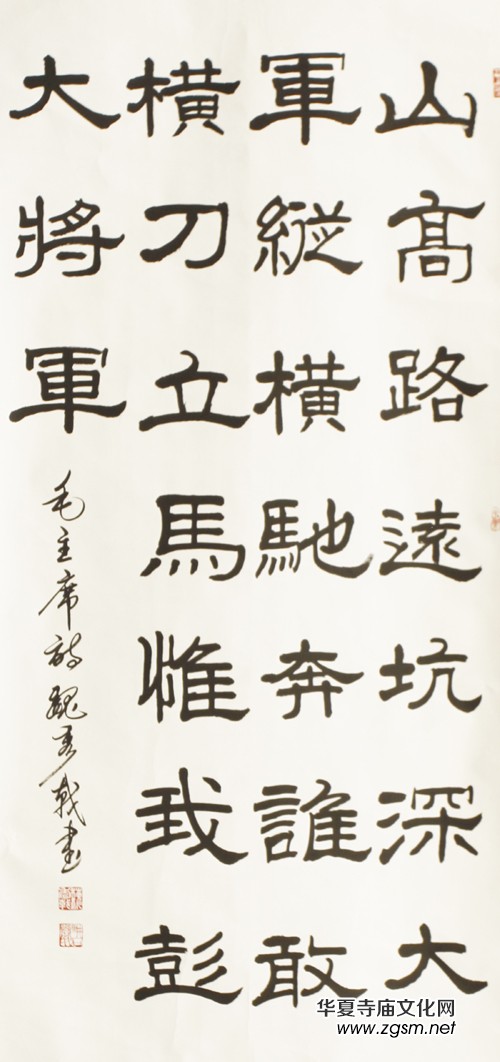 山髙路遠坑深大
軍縱横馳奔誰敢
横刀立馬惟我彭
大將軍
毛主席詩魏戟書
华夏寺庙文化网
www.zgsm.net